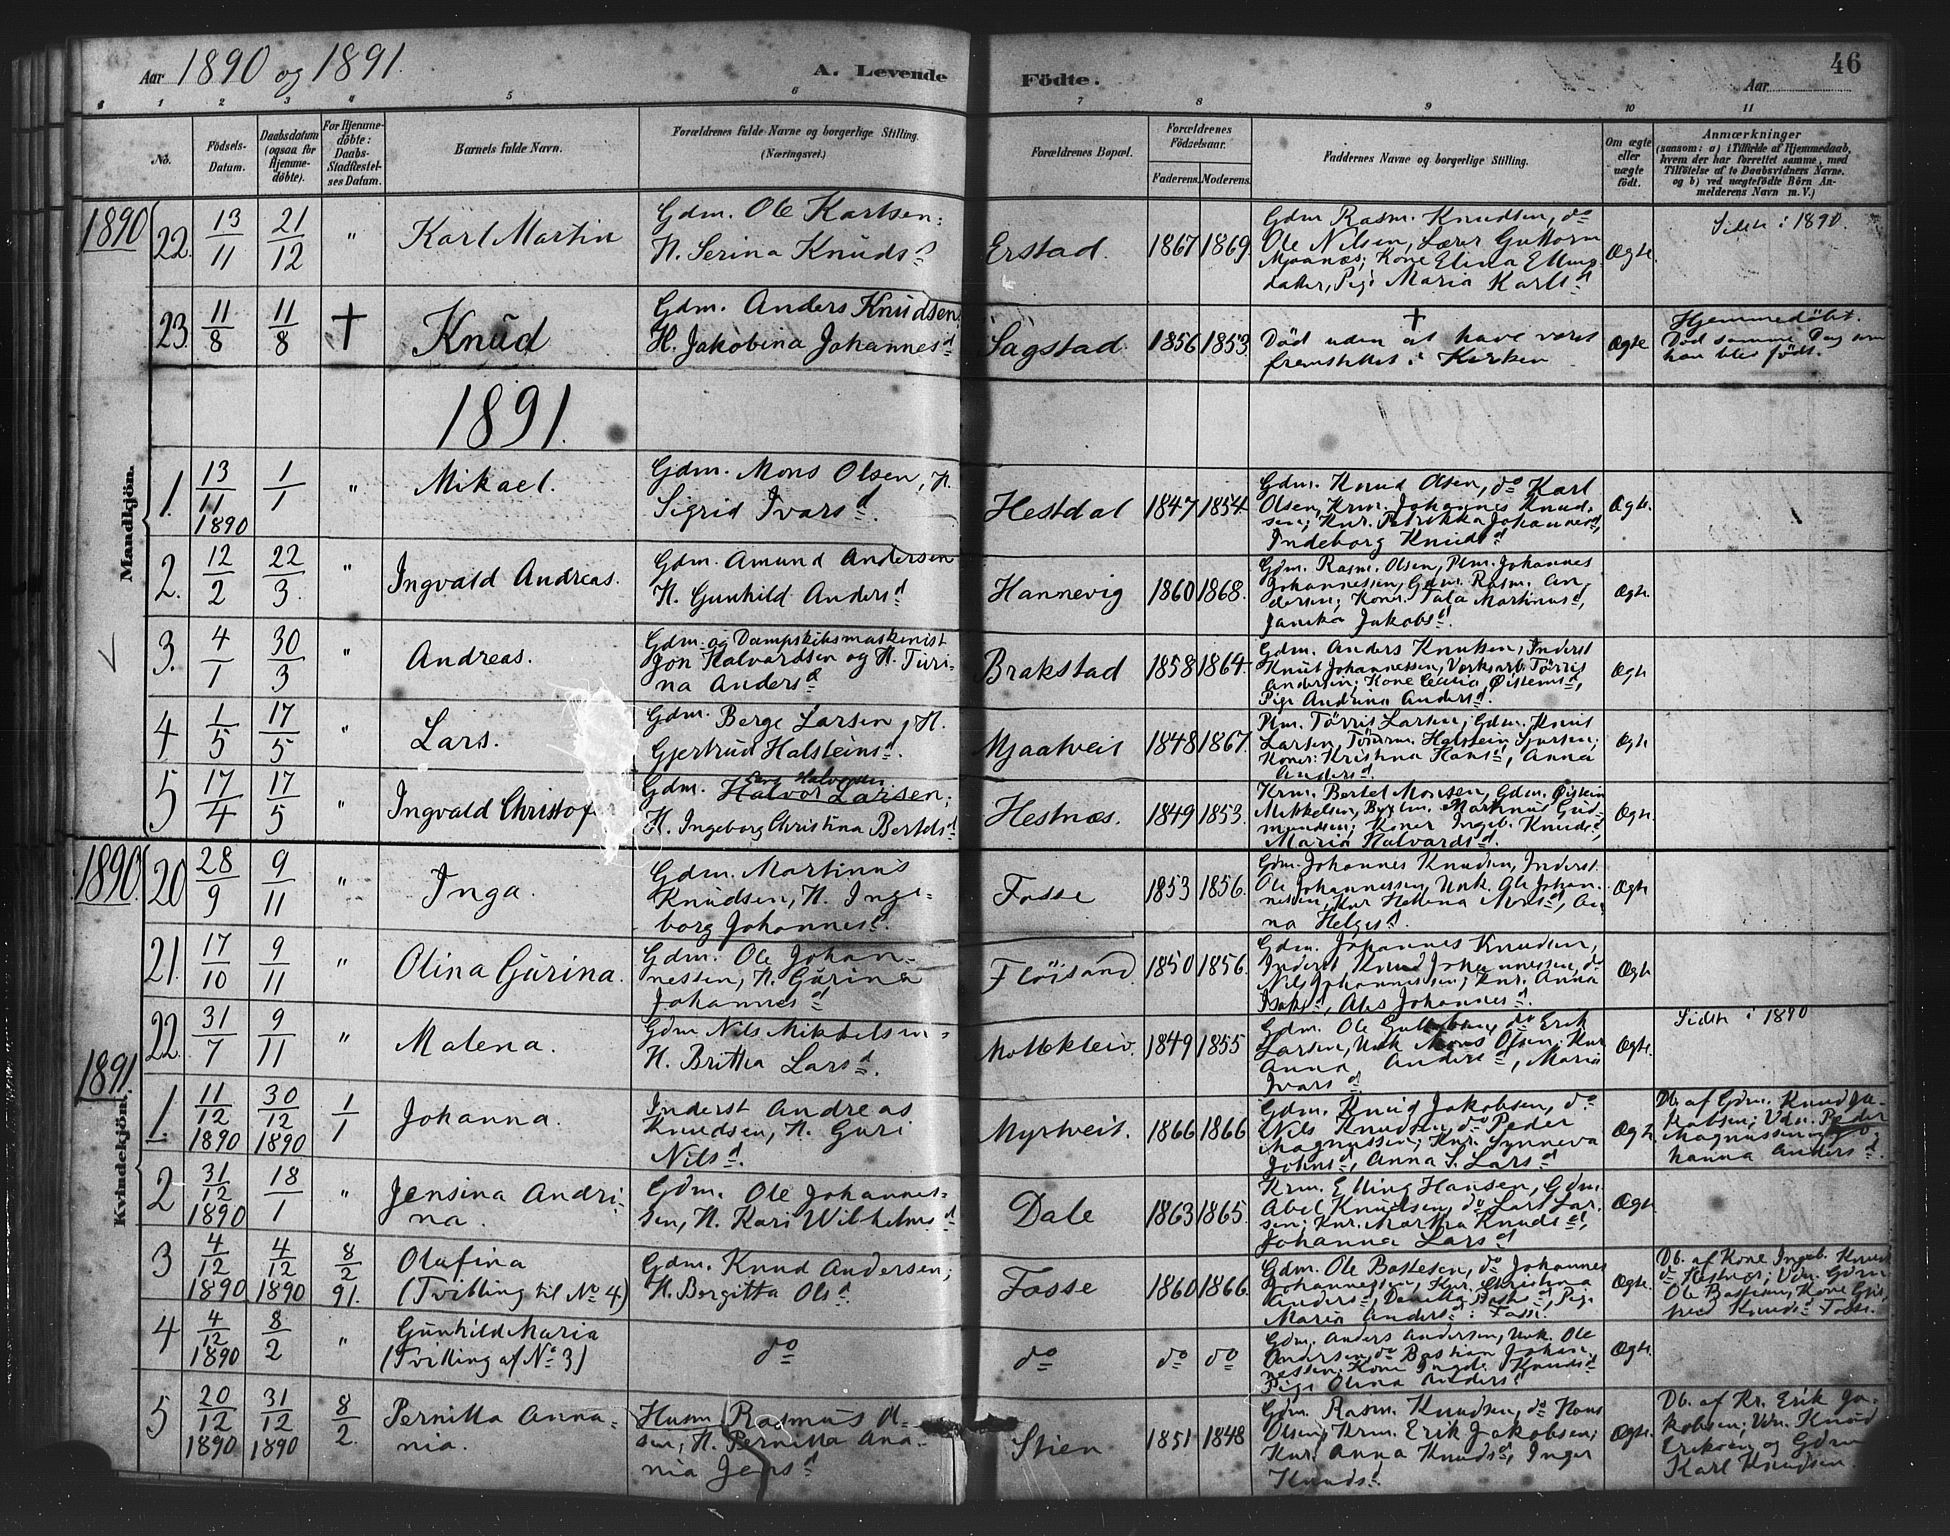 Aar 1890 og 1891.
A. Levende Födte.
46
Aar
1 2 3 4 5 6 7 8 9 10 11
No.
Födsels-Datum.
Daabsdatum (ogsaa for Hjemmedöbte).
For Hjemmedöbte: Daabs-Stadfæstelses Datum.
Barnets fulde Navn.
Forældrenes fulde Navne og borgerlige Stilling.
(Næringsvei.)
Forældrenes Bopæl.
Forældrenes Födselsaar.
Faderens. Moderens.
Faddernes Navne og borgerlige Stilling.
Om ægte eller uægte födt.
Anmærkninger
(saasom: a) i Tilfælde af Hjemmedaab,
hvem der har forrettet samme, med
Tilföielse af to Daabsvidners Navne.
og b) ved uægtefödte Börn Anmelderens Navn m. V.)
Mandkjön.
1890
22. 13/11 21/12 " Karl Martin
Gdm. Ole Karlsen;
H. Serina Knudsd
Erstad. 1867 1869.
Gdm Rasm. Knudsen, do
Ole Nilsen, Lærer Guttorm
Mjaanæs; Kone Elina Ellings
datter, Pige Maria Karlsd
Ægte.
Sidste i 1890.
23. 11/8 11/8 † Knud
Gdm. Anders Knudsen,
H. Jakobina Johannesd
Sagstad. 1856 1853.
†
Död uden at have været
fremstillet i Kirken
Ægte
Hjemmedöbt.
Död samme Dag som
han blev födt.
1891.
1. 13/11 1890 1/1 " Mikael.
Gdm. Mons Olsen, H.
Sigrid Ivarsd.
Hestdal 1847 1854.
Gdm. Knud Olsen, do Karl
Olsen, Krm. Johannes Knudsen; Knr. Petrikka Johannesd,
Indeborg Knudsd
Ægte.
2. 12/2 22/3 " Ingvald Andreas.
Gdm. Amund Andersen
H. Gunhild Andersd
Hannevig 1860 1868.
Gdm. Rasm. Olsen, Plm. Johannes
Johannessen, Gdm. Rasm. Andersen; Koner: Tala Martinusd,
Janika Jakobsd
Ægte.
3. 4/1 30/3 " Andreas.
Gdm. og Dampskibsmaskinist
Jon Halvardsen og H. Turina Andersd
Brakstad 1858 1864.
Gdm. Anders Knutsen, Inderst
Knut Johannessen, Verksarb. Törris
Andersen; Kone Cecilia Øistensd,
Pige Andrina Andersd.
Ægte
4 1/5 17/5 " Lars.
Gdm. Berge Larsen, H.
Gjertrud Halsteinsd.
Mjaatveit 1848 1867.
Plm. Törris Larsen, Gdm. Knut
Larsen, Halstein Sjursen;
Koner: Kristina Hansd, Anna
Andersd.
Ægte
5 17/4 17/5 " Ingvald Christofer
Gdm. Halvor Larsen;
H. Ingeborg Christina Bertelsd
Hestnæs. 1849 1853.
Krm. Bertel Monsen, Gdm. Øistein
Mikkelsen, Martinus Gudmundsen; Koner Ingeb. Knudsd,
Maria Halvardsd.
Ægte.
Kvindekjön.
1890.
20 28/9 9/11 " Inga.
Gdm. Martinus
Knudsen, H. Ingeborg Johannesd.
Fosse 1853 1856.
Gdm. Johannes Knudsen, Inderst.
Ole Johannessen, Unk. Ole Johannessen, Knr Hellena Monsd, Anna Helgesd.
Ægte
21. 17/10 9/11 " Olina Gurina.
Gdm. Ole Johannessen, H. Gurina
Johannesd
Flöisand 1850 1856.
Gdm. Johannes Knudsen,
Inderst Knud Johannessen, do
Nils Johannessen; Knr. Anna
Alis Johannesd.
Ægte
22. 31/7 9/11 " Malena.
Gdm Nils Mikkelsen
H. Britha Larsd.
Moltekleiv. 1849 1855
Gdm. Ole do Erik
Larsen, Unk Mons Olsen; Knr
Anna Andersd, Maria
Ivarsd
Ægte.
Sidste i 1890
1891.
1. 11/12 1890 30/12 1890 1/1 Johanna.
Inderst Andreas
Knudsen, H. Guri
Nilsd.
Myrtveit. 1866 1866
Gdm. Knud Jakobsen, do
Nils Knudsen, do Peder
Magnussen; Knr. Synneva
Johnsd, Anna S. Larsd
Ægte
Db. af Gdm. Knud Jakobsen; Vdn. Peder
Magnussen og Johanna Andersd.
2 31/12 1890 18/1 " Jensina Andrina.
Gdm. Ole Johannessen, H. Kari Wilhelmsd
Dale 1863 1865.
Krm. Elling Hansen, Gdm
Abel Knudsen, do Lars Larsen; Knr. Martha Knudsd,
Johanna Larsd
Ægte
3 4/12 1890 4/12 1890 8/2 91. Olafina
(Tvilling til No 4)
Gdm. Knud Andersen;
H. Borgitta Olsd.
Fosse 1860 1866.
Gdm. Ole Bastesen, do Johannes
Johannessen, Knr. Christina
Andersd, Pige
Maria Andersd: Fosse.
Ægte.
Db. af Kone Ingeb. Knudsd
Hestnes; Vdn. Gdm
Ole Bastesen, Kone
Knudsd Fosse.
4 4/12 1890 8/2 " Gunhild Maria
(Tvilling af No 3)
do
do do do
Gdm. Anders Andersen, Unk. Ole
Andersen, do Bastian Johannessen. Kone Ingeb. Knudsd
Pige Olina Andersd
Ægte.
5 20/12 1890 31/12 1890 8/2. Pernilla Annania.
Husm. Rasmus Olsen, H. Pernilla Anania Jensd
Stien 1851 1848
Gdm. Rasm. Knudsen, do Hans
Olsen, Krm. Erik Jakobsen;
Knr. Anna Knudsd, Inger
Knudsd.
Ægte.
Db. af Kr. Erik Jakobsen; Vdn. Knud
Eriksen og Gdm
Karl Knudsen.